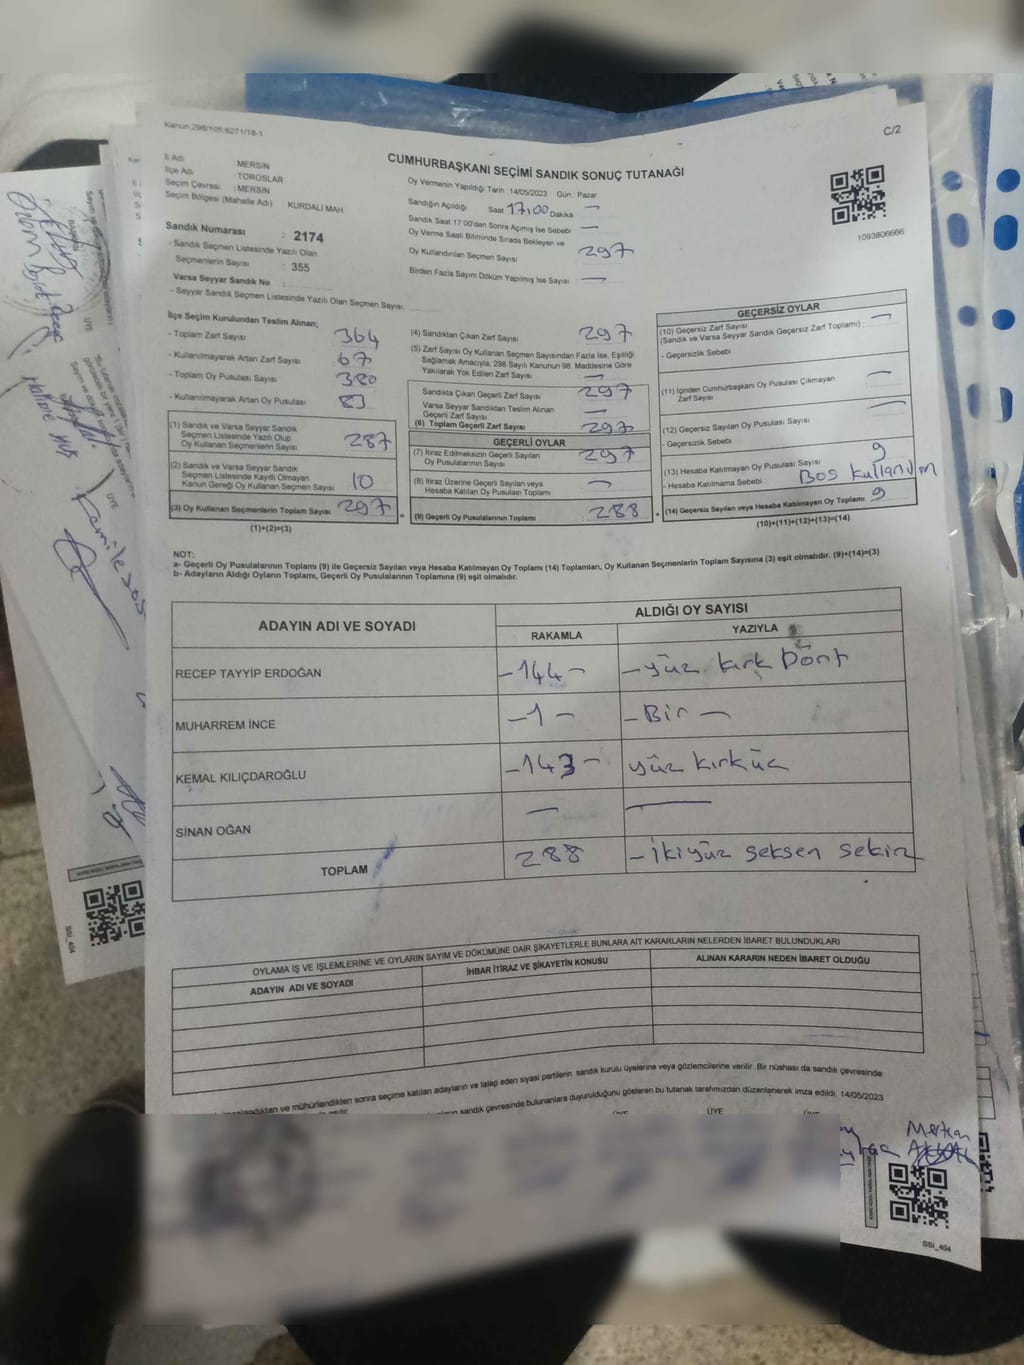 Kanun:298/105;6271/18-1
C/2
CUMHURBAŞKANI SEÇİMİ SANDIK SONUÇ TUTANAĞI
İl Adı : MERSİN
İlçe Adı : TOROSLAR
Seçim Çevresi : MERSİN
Seçim Bölgesi (Mahalle Adı) : KURDALİ MAH.
Oy Vermenin Yapıldığı Tarih : 14/05/2023 Gün : Pazar
Sandığın Açıldığı Saat 17:00 Dakika —
Sandık Saat 17:00'den Sonra Açılmış İse Sebebi —
Oy Verme Saati Bitiminde Sırada Bekleyen ve
Oy Kullandırılan Seçmen Sayısı 297
Birden Fazla Sayım Döküm Yapılmış İse Sayısı —
1093806666
Sandık Numarası : 2174
- Sandık Seçmen Listesinde Yazılı Olan
Seçmenlerin Sayısı : 355
Varsa Seyyar Sandık No :
- Seyyar Sandık Seçmen Listesinde Yazılı Olan Seçmen Sayısı:
İlçe Seçim Kurulundan Teslim Alınan;
- Toplam Zarf Sayısı 364
- Kullanılmayarak Artan Zarf Sayısı 67
- Toplam Oy Pusulası Sayısı 380
- Kullanılmayarak Artan Oy Pusulası 83
(1) Sandık ve Varsa Seyyar Sandık
Seçmen Listesinde Yazılı Olup
Oy Kullanan Seçmenlerin Sayısı 287
(2) Sandık ve Varsa Seyyar Sandık
Seçmen Listesinde Kayıtlı Olmayan
Kanun Gereği Oy Kullanan Seçmen Sayısı 10
(3) Oy Kullanan Seçmenlerin Toplam Sayısı 297
(1)+(2)=(3)
(4) Sandıktan Çıkan Zarf Sayısı 297
(5) Zarf Sayısı Oy Kullanan Seçmen Sayısından Fazla İse, Eşitliği
Sağlamak Amacıyla, 298 Sayılı Kanunun 98. Maddesine Göre
Yakılarak Yok Edilen Zarf Sayısı —
Sandıkta Çıkan Geçerli Zarf Sayısı 297
Varsa Seyyar Sandıktan Teslim Alınan
Geçerli Zarf Sayısı —
(6) Toplam Geçerli Zarf Sayısı 297
GEÇERLİ OYLAR
(7) İtiraz Edilmeksizin Geçerli Sayılan
Oy Pusulalarının Sayısı 297
(8) İtiraz Üzerine Geçerli Sayılan veya
Hesaba Katılan Oy Pusulası Toplamı —
(9) Geçerli Oy Pusulalarının Toplamı : 288
GEÇERSİZ OYLAR
(10) Geçersiz Zarf Sayısı —
(Sandık ve Varsa Seyyar Sandık Geçersiz Zarf Toplamı)
- Geçersizlik Sebebi
(11) İçinden Cumhurbaşkanı Oy Pusulası Çıkmayan
Zarf Sayısı —
(12) Geçersiz Sayılan Oy Pusulası Sayısı —
- Geçersizlik Sebebi
(13) Hesaba Katılmayan Oy Pusulası Sayısı 9
- Hesaba Katılmama Sebebi : Bos kullanım
(14) Geçersiz Sayılan veya Hesaba Katılmayan Oy Toplamı 9
(10)+(11)+(12)+(13)=(14)
NOT:
a- Geçerli Oy Pusulalarının Toplamı (9) ile Geçersiz Sayılan veya Hesaba Katılmayan Oy Toplamı (14) Toplamları, Oy Kullanan Seçmenlerin Toplam Sayısına (3) eşit olmalıdır. (9)+(14)=(3)
b- Adayların Aldığı Oyların Toplamı, Geçerli Oy Pusulalarının Toplamına (9) eşit olmalıdır.
ADAYIN ADI VE SOYADI
ALDIĞI OY SAYISI
RAKAMLA YAZIYLA
RECEP TAYYİP ERDOĞAN -144- -yüz kırk Dört
MUHARREM İNCE -1- -Bir-
KEMAL KILIÇDAROĞLU -143- yüz kırküç
SİNAN OĞAN — —
TOPLAM 288 -ikiyüz seksen sekiz
OYLAMA İŞ VE İŞLEMLERİNE VE OYLARIN SAYIM VE DÖKÜMÜNE DAİR ŞİKAYETLERLE BUNLARA AİT KARARLARIN NELERDEN İBARET BULUNDUKLARI
ADAYIN ADI VE SOYADI İHBAR İTİRAZ VE ŞİKAYETİN KONUSU ALINAN KARARIN NEDEN İBARET OLDUĞU
ve mühürlendikten sonra seçime katılan adayların ve talep eden siyasi partilerin sandık kurulu üyelerine veya gözlemcilerine verilir. Bir nüshası da sandık çevresinde
sandık çevresinde bulunanlara duyurulduğunu gösteren bu tutanak tarafımızdan düzenlenerek imza edildi. 14/05/2023
ÜYE
Mertcan
SSI_404
SSI_404
ÜYE
ÜYE